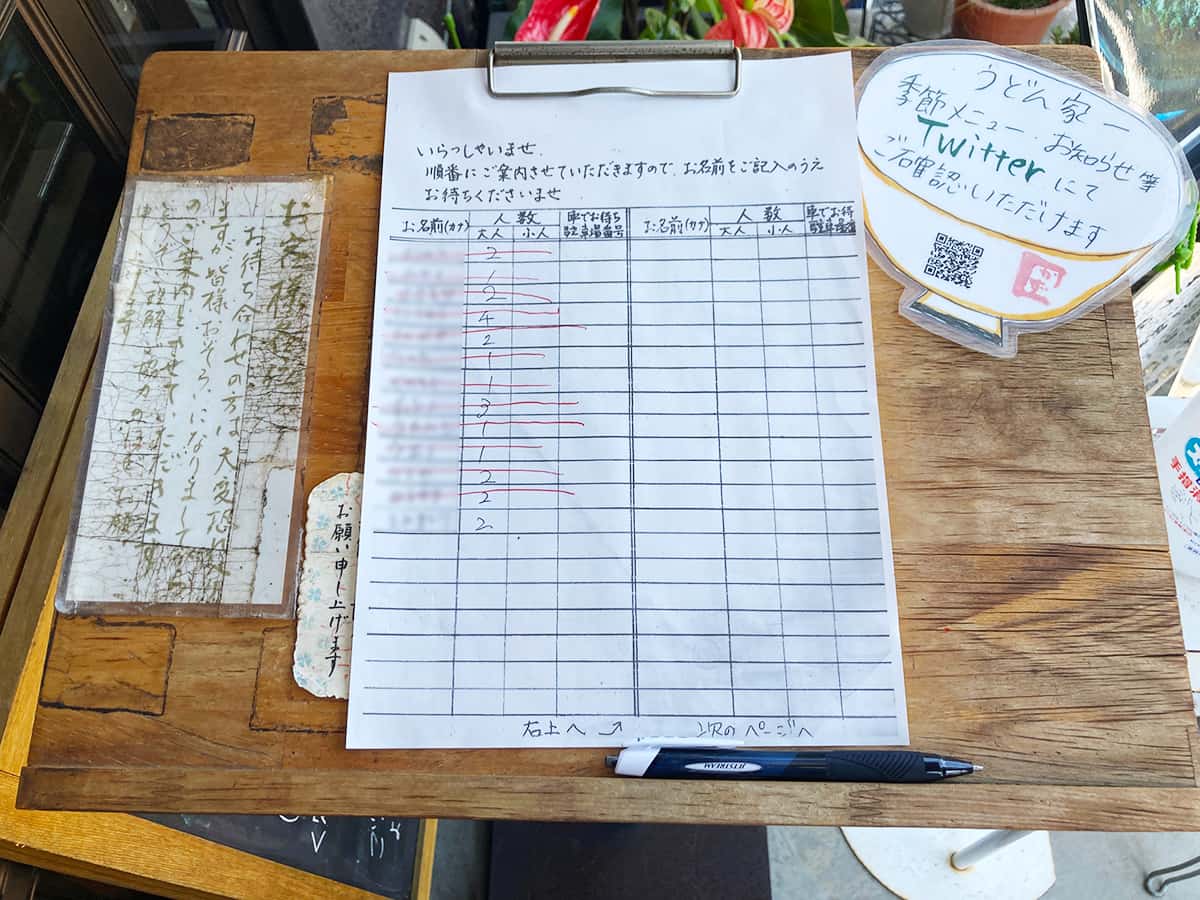 いらっしゃいませ.
順番にご案内させていただきますので、お名前をご記入のうえ
お待ちくださいませ
お名前(カナ) 人数 車でお待ち お名前(カナ) 人数 車でお待
大人 小人 駐車場番号 大人 小人
2
1
2
4
2
1
1
3
1
1
2
2
2
右上へ 次のページへ
うどん家一
季節メニュー・お知らせ等
Twitterにて
ご確認いただけます
お客様
お待ち合わせの方は大変恐
ますが皆様おそろいになりまして
のご案内とさせていただきます
お願い申し上げます
JETSTREAM
手指消